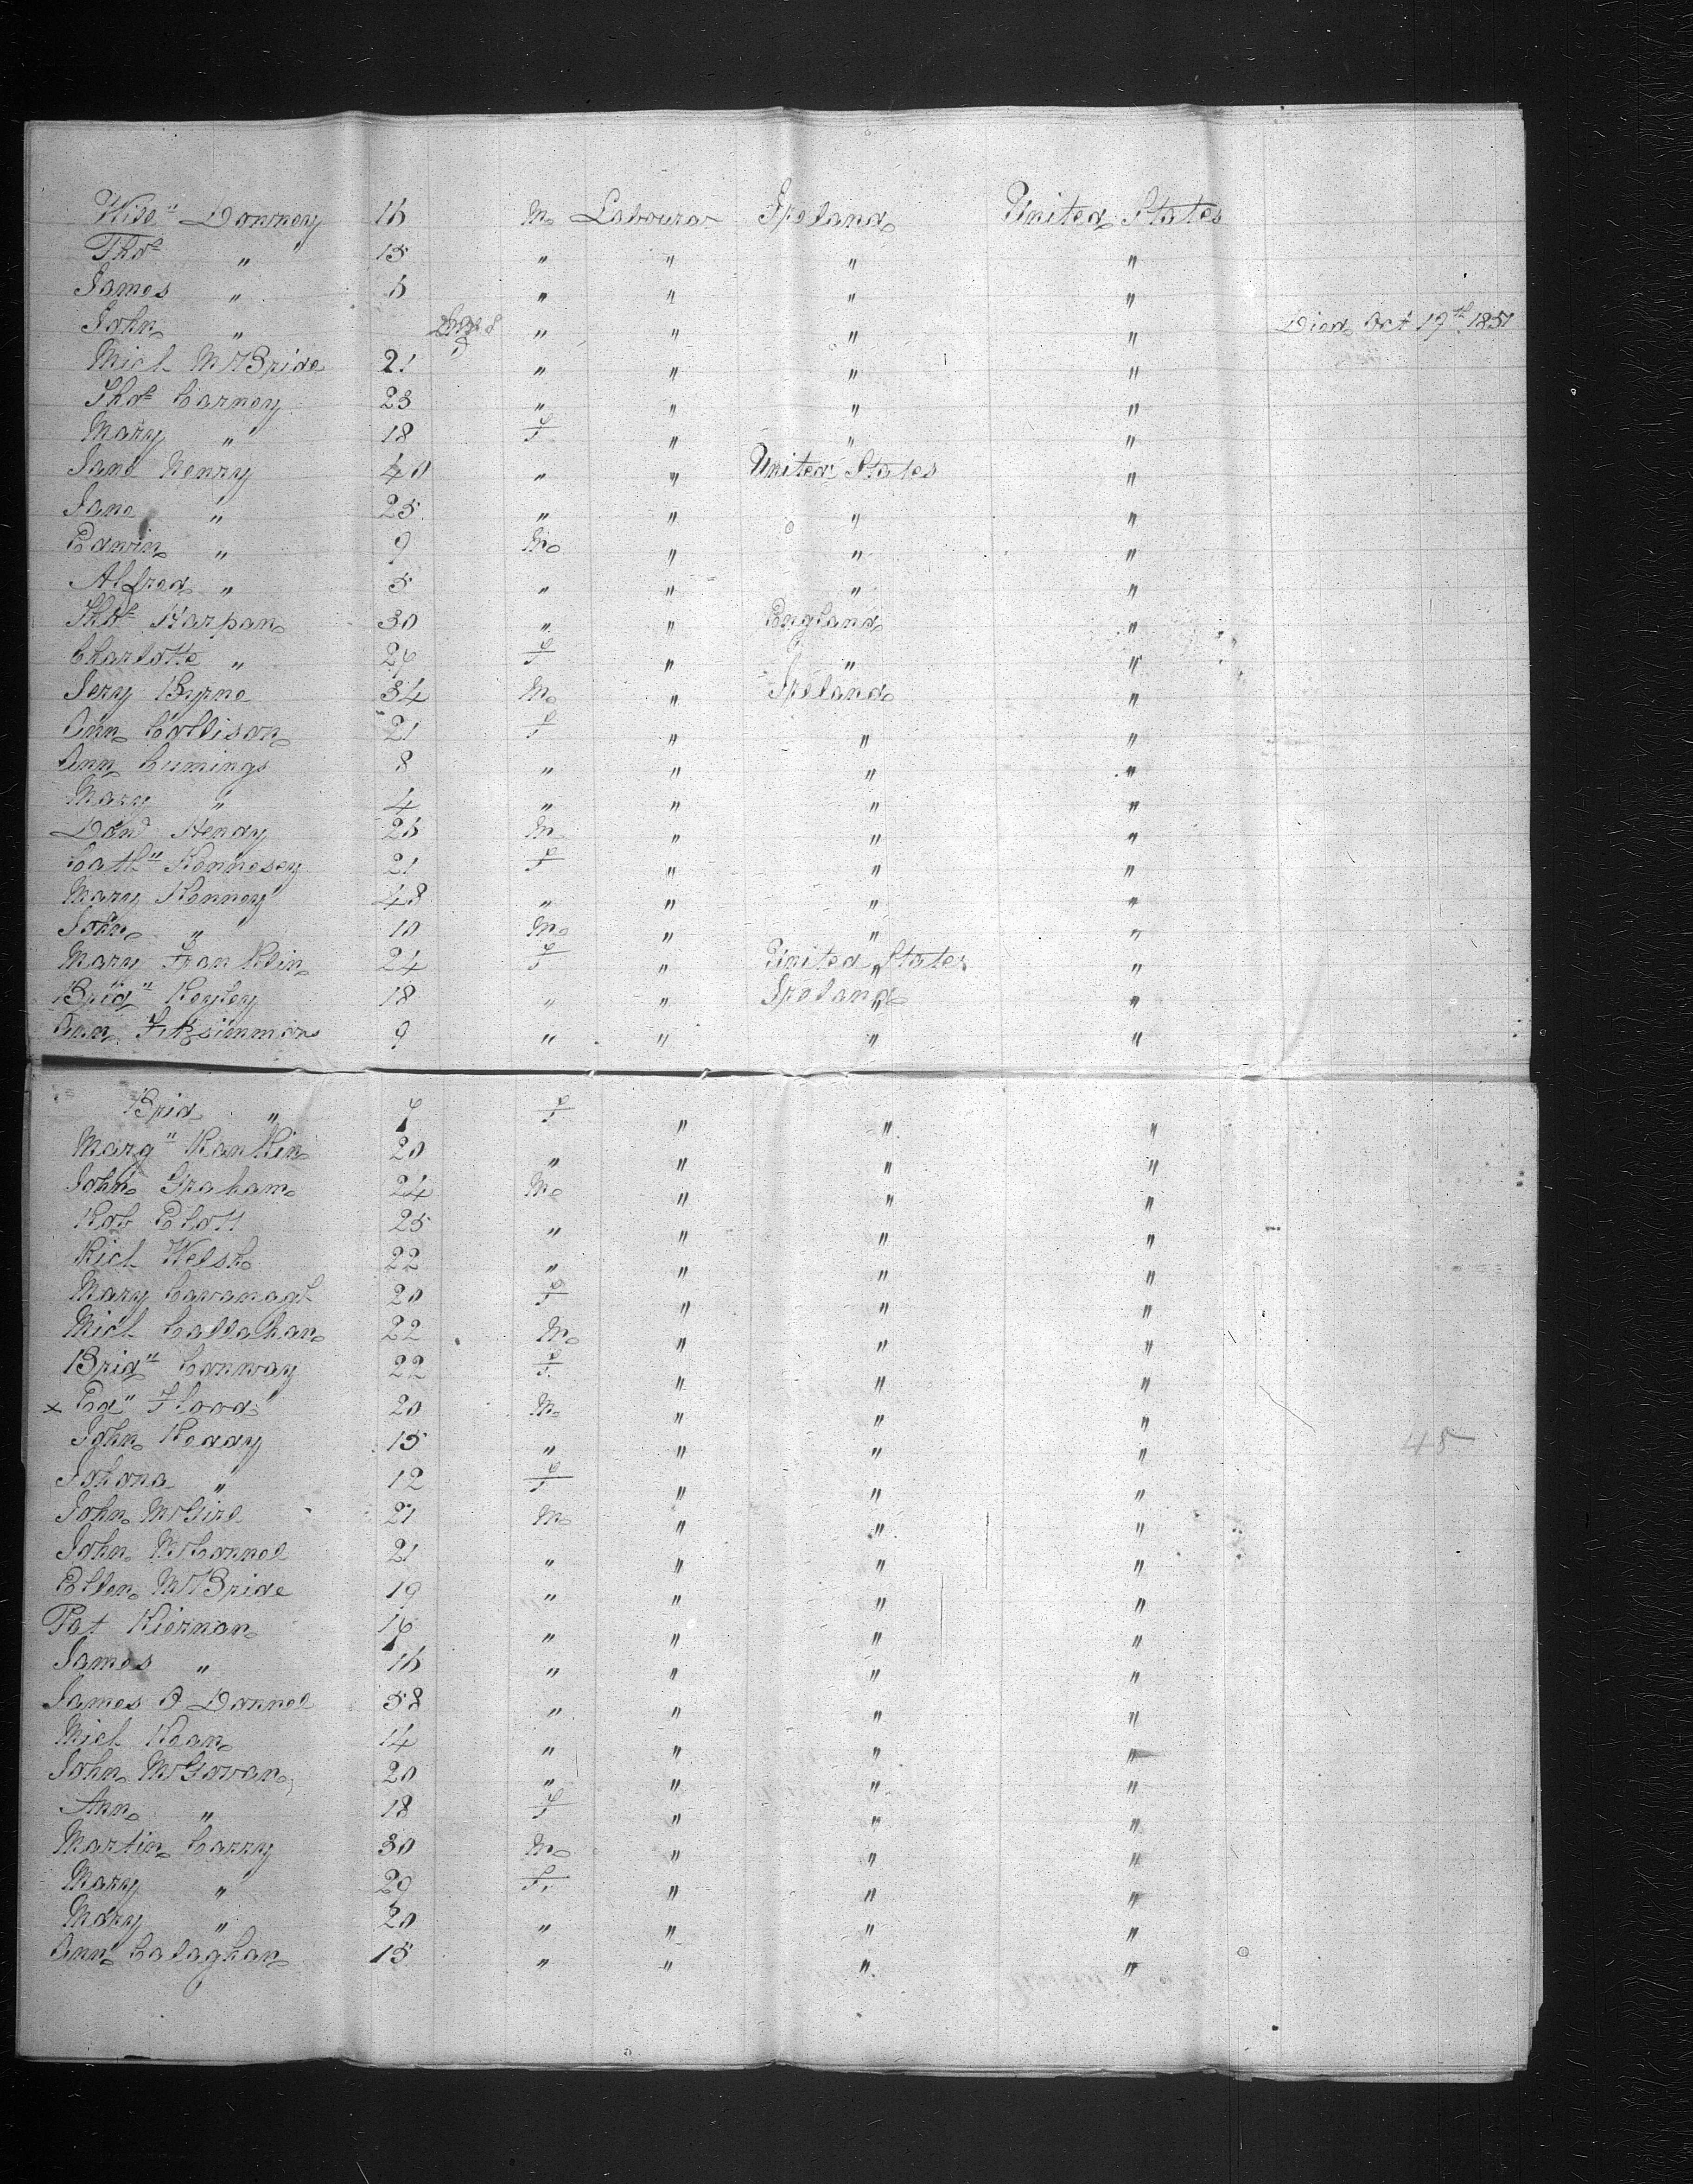 Downey 16 M Labourer Ireland United States
Thos " 15 " " " "
James " 6 " " " "
John " " " " " Died Oct 19th 1851
Michl McBride 21 " " " "
Thos Carney 23 " " " "
Mary " 18 F " " "
Jane Henry 40 " " United States "
Jane " 25 " " " "
Edwin " 9 M " " "
Alfred " 5 " " " "
Thos Harpan 30 " " England "
Charlotte " 29 F " " "
Jery Byrne 34 M " Ireland "
Ann Collison 21 F " " "
Ann Cumings 8 " " " "
Mary " 4 " " " "
Dand Hendy 26 M " " "
Cath" Hennesey 21 F " " "
Mary Kenney 48 " " " "
John " 10 M " " "
Mary Franklin 24 F " United States "
Brid" Keyley 18 " " Ireland "
Ann Fitzsimmons 9 " " " "
Brid " 7 F " " "
Marg" Rankin 20 " " " "
John Graham 24 M " " "
Rob Elott 25 " " " "
Rich Welsh 22 " " " "
Mary Cavanagh 20 F " " "
Michl Callahan 22 M " " "
Brid" Conway 22 F " " "
x Ed" Flood 20 M " " "
John Reddy 15 " " " " 48
Johona " 12 F " " "
John McGirl 21 M " " "
John McConnel 21 " " " "
Ellen McBride 19 " " " "
Pat Kiernan 17 " " " "
James " 16 " " " "
James O Donnel 58 " " " "
Michl Kean 14 " " " "
John McGowan 20 " " " "
Ann " 18 F " " "
Martin Carry 30 M " " "
Mary " 29 F " " "
Mary " 20 " " " "
Ann Calaghan 15 " " " "